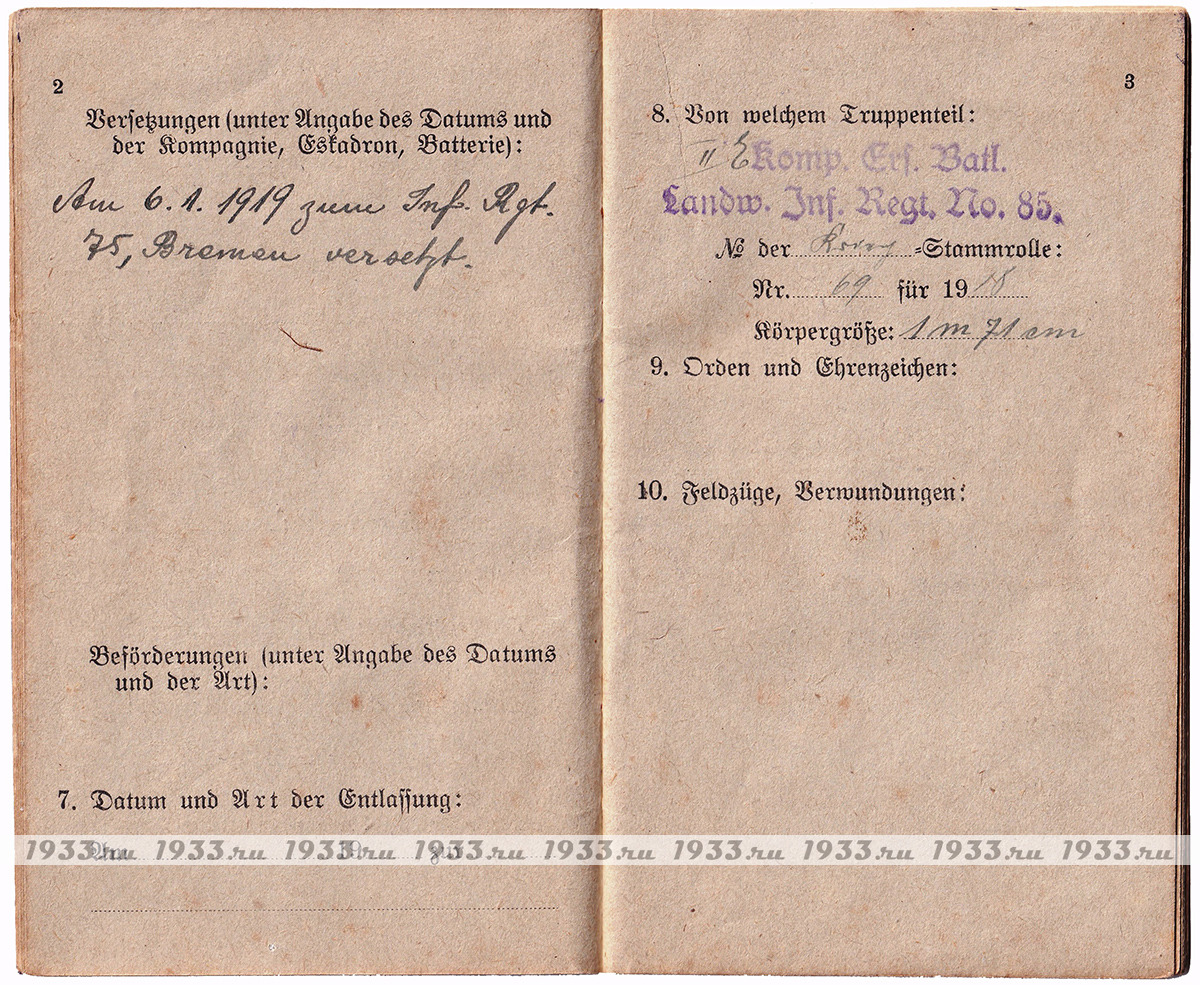 2
Versetzungen (unter Angabe des Datums und
der Kompagnie, Eskadron, Batterie):
Am 6. 1. 1919 zum Inf. Rgt.
75, Bremen versetzt.
Beförderungen (unter Angabe des Datums
und der Art):
7. Datum und Art der Entlassung:
Am 19 zur
1933.ru 1933.ru 1933.ru 1933.ru 1933.ru 1933.ru 1933.ru 1933.ru 1933.ru
3
8. Von welchem Truppenteil:
II E Komp. Ers. Batl.
Landw. Inf. Regt. No. 85.
№ der -Stammrolle:
Nr. 69 für 1918
Körpergröße: 1 m 71 cm
9. Orden und Ehrenzeichen:
10. Feldzüge, Verwundungen: